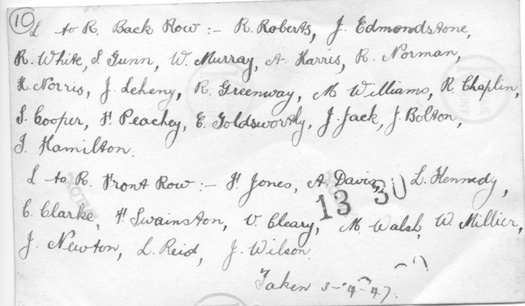 10
L to R. Back Row :- R. Roberts, J. Edmondstone,
R. White, L. Gunn, W. Murray, A. Harris, R. Norman,
H. Norris, J. Leheny, R. Greenway, M. Williams, R. Chaplin,
S. Cooper, H. Peachey, E. Goldsworthy, J. Jack, J. Bolton,
J. Hamilton.
L to R. Front Row :- H. Jones, A. Davis, L. Kennedy,
C. Clarke, H. Swainston, V. Cleary, M. Walsh, W. Millier,
13 30
J. Newton, L. Reid, J. Wilson.
Taken 3-4-47.